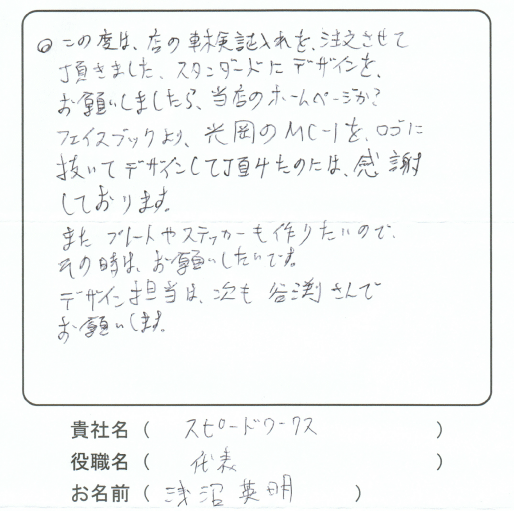 ◎この度は、店の車検証入れを、注文させて
頂きました。スタンダードにデザインを、
お願いしましたら、当店のホームページか?
フェイスブックより、光岡のMC-1を、ロゴに
抜いてデザインして頂けたのには、感謝
しております。
また プレートやステッカーも作りたいので、
その時は、お願いしたいです。
デザイン担当は、次も 谷渕さんで
お願いします。
貴社名( スピードワークス )
役職名( 代表 )
お名前( 浅沼英明 )